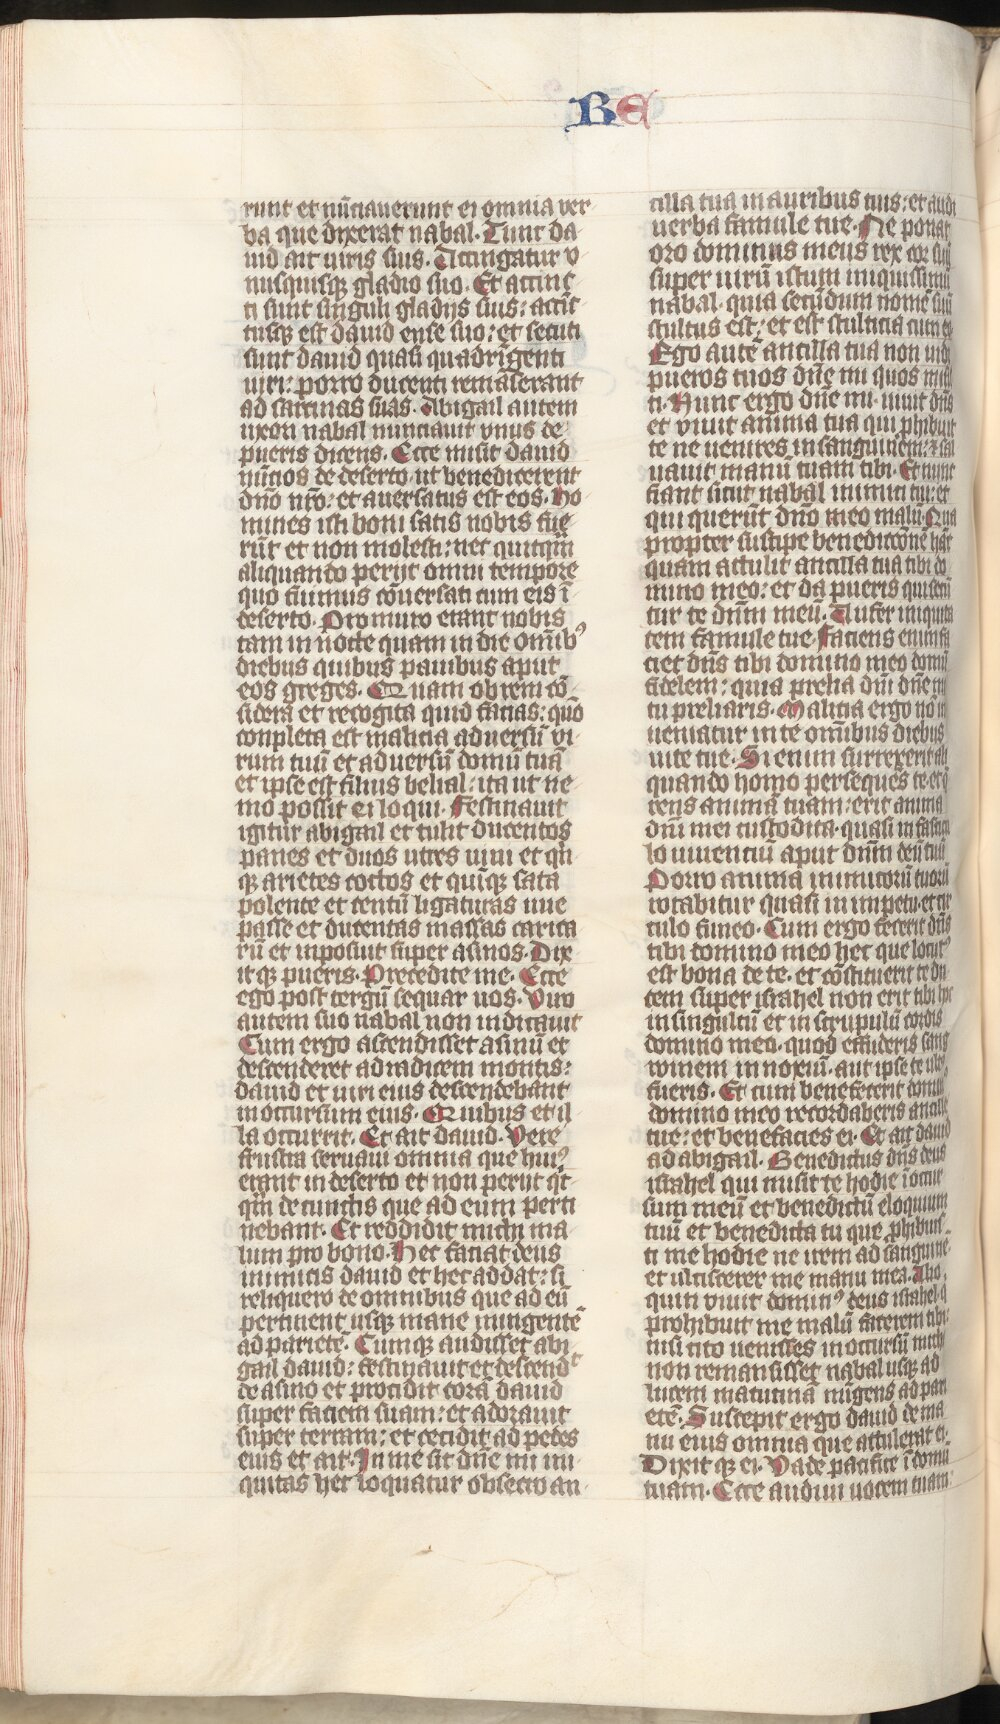 RE
runt et nūciaverunt ei omnia ver
ba que dixerat nabal. Tunc da
uid ait uiris suis. Accingatur v
nusquisqꝫ gladio suo. Et accinc
ti sunt singuli gladijs suis: accīc
tusqꝫ est dauid ense suo: et secuti
sunt dauid quasi quadrīgenti
uiri: porro ducenti remāserant
ad sarcinas suas. Abigail autem
uxori nabal nunciauit vnus de
pueris dicens. Ecce misit dauid
nūcios de deserto ut benedicerent
dn̄o nr̄o: et auersatus est eos. Ho
mines isti boni satis nobis fue
rūt et non molesti: nec quitqͣm
aliquando perijt omni tempore
quo fuimus cōuersati cum eis ī
deserto. Pro muro erant nobis
tam in nocte quam in die omībꝰ
diebus quibus pauibus aput
eos greges. Quam ob rem cō
sidera et recogita quid facias: quō
conpleta est malicia aduersū vi
rum tuū et aduersū domū tuā
et ipse est filius belial: ita ut ne
mo possit ei loqui. Festinauit
igitur abigail et tulit ducentos
panes et duos utres uini et qͥn
qꝫ arietes coctos et quīqꝫ sata
polente et centū ligaturas uue
passe et ducentas massas carica
rū et inposuit super asinos. Dix
it qꝫ pueris. Precedite me. Ecce
ego post tergū sequar uos. Viro
autem suo nabal non indicauit
Cum ergo ascendisset asinū et
descenderet ad radicem montis:
dauid et uiri eius descendebant
in occursum eius. Quibus et il
la occurrit. Et ait dauid. Vere
frustra seruaui omnia que huiꝰ
erant in deserto et non perijt qͥc
qͣm de cunctis que ad eum perti
nebant. Et reddidit michi ma
lum pro bono. Hec faciat deus
inimicis dauid et hec addat: si
reliquero de omnibus que ad eū
pertinent usqꝫ mane mingentē
ad parietē. Cumqꝫ audisset abi
gail dauid: festinauit et descendᵗ
de asino et procidit corā dauid
super faciem suam: et adorauit
super terram: et cecidit ad pedes
eius et ait. In me sit dn̄e mi ini
quitas hec loquatur obsecro an
cilla tua in auribus tuis: et audi
uerba famule tue. Ne ponat
oro dominus meus rex cor suū
super uirū istum iniquissimū
nabal. quia secūdum nomē suū
stultus est: et est stulticia cum eo
Ego autē ancilla tua non uidi
pueros tuos dn̄e mi quos misis
ti. Nunc ergo dn̄e mi. uiuit dn̄s
et viuit anima tua qui ꝓhibuit
te ne uenires in sanguinem: ⁊ sal
uauit manū tuam tibi. Et nunc
fiant sicut nabal inimici tui: et
qui querūt dn̄o meo malū. Qua
propter suscipe benedictōne hāc
quam attulit ancilla tua tibi do
mino meo: et da pueris qui secū
tur te dn̄m meū. Aufer iniquita
tem famule tue. Faciens enim fa
ciet dn̄s tibi domino meo domū
fidelem: quia prelia dn̄i dn̄e mi
tu preliaris. Malicia ergo nō in
ueniatur in te omībus diebus
uite tue. Si enim surrexerit ali
quando homo perseques te et q̄
rens animā tuam: erit anima
dn̄i mei custodita. quasi in fascicu
lo uiuentiū aput dn̄m deū tuū
Porro anima inimicorū tuorū
rotabitur quasi in impetu. et cir
culo funeo. Cum ergo fecerit dn̄s
tibi domino meo hec que locutꝰ
est bona de te. et cōstituerit te du
cem super israhel non erit tibi hoc
in singultū et in scrupulū cordis
domino meo. quod effuderis sang
winem innoxiū. aut ipse te ultꝰ
fueris. Et cum benefecerit dominꝰ
domino meo recordaberis ancille
tue: et benefacies ei. Et ait dauid
ad abigail. Benedictus dn̄s deus
israhel qui misit te hodie ī occur
sum meū et benedictū eloquium
tuū et benedicta tu que ꝓhibuis
ti me hodie ne irem ad sanguinē.
et ulciscerer me manu mea. Alio
quin viuit dominꝰ deus israhel. q
prohibuit me malū facerem tibi:
nisi cito uenisses in occursū michi
non remansisset nabal usqꝫ ad
lucem matutinā mīgens ad pari
etē. Suscepit ergo dauid de ma
nu eius omnia que attulerat ei.
Dixit qꝫ ei. Vade pacifice ī domū
tuam. Ecce audiui uocem tuam